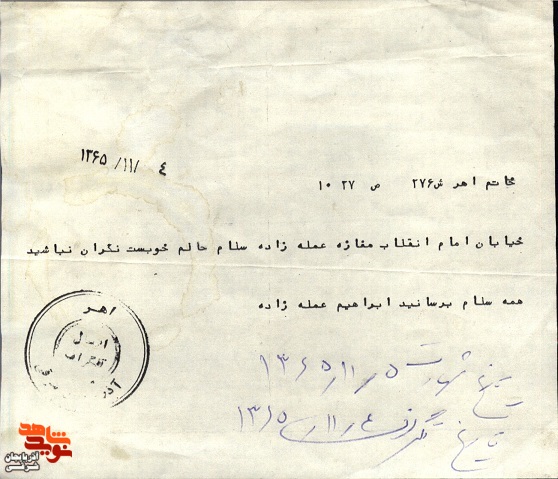 ۱۳۶۵/۱۱/ ٤
مخاتم اهر ش۲۷۶ ص ۲۷ ۱۰
خیابان امام انقلاب مغازه عمله زاده سلام حالم خوبست نگران نباشید
همه سلام برسانید ابراهیم عمله زاده
اهر
ارسال
تلگراف
تاریخ شهادت ۵ / ۱۱ / ۱۳۶۵
تاریخ تلگراف ٤ / ۱۱ / ۱۳۶۵
نوید شاهد
آذربایجان شرقی